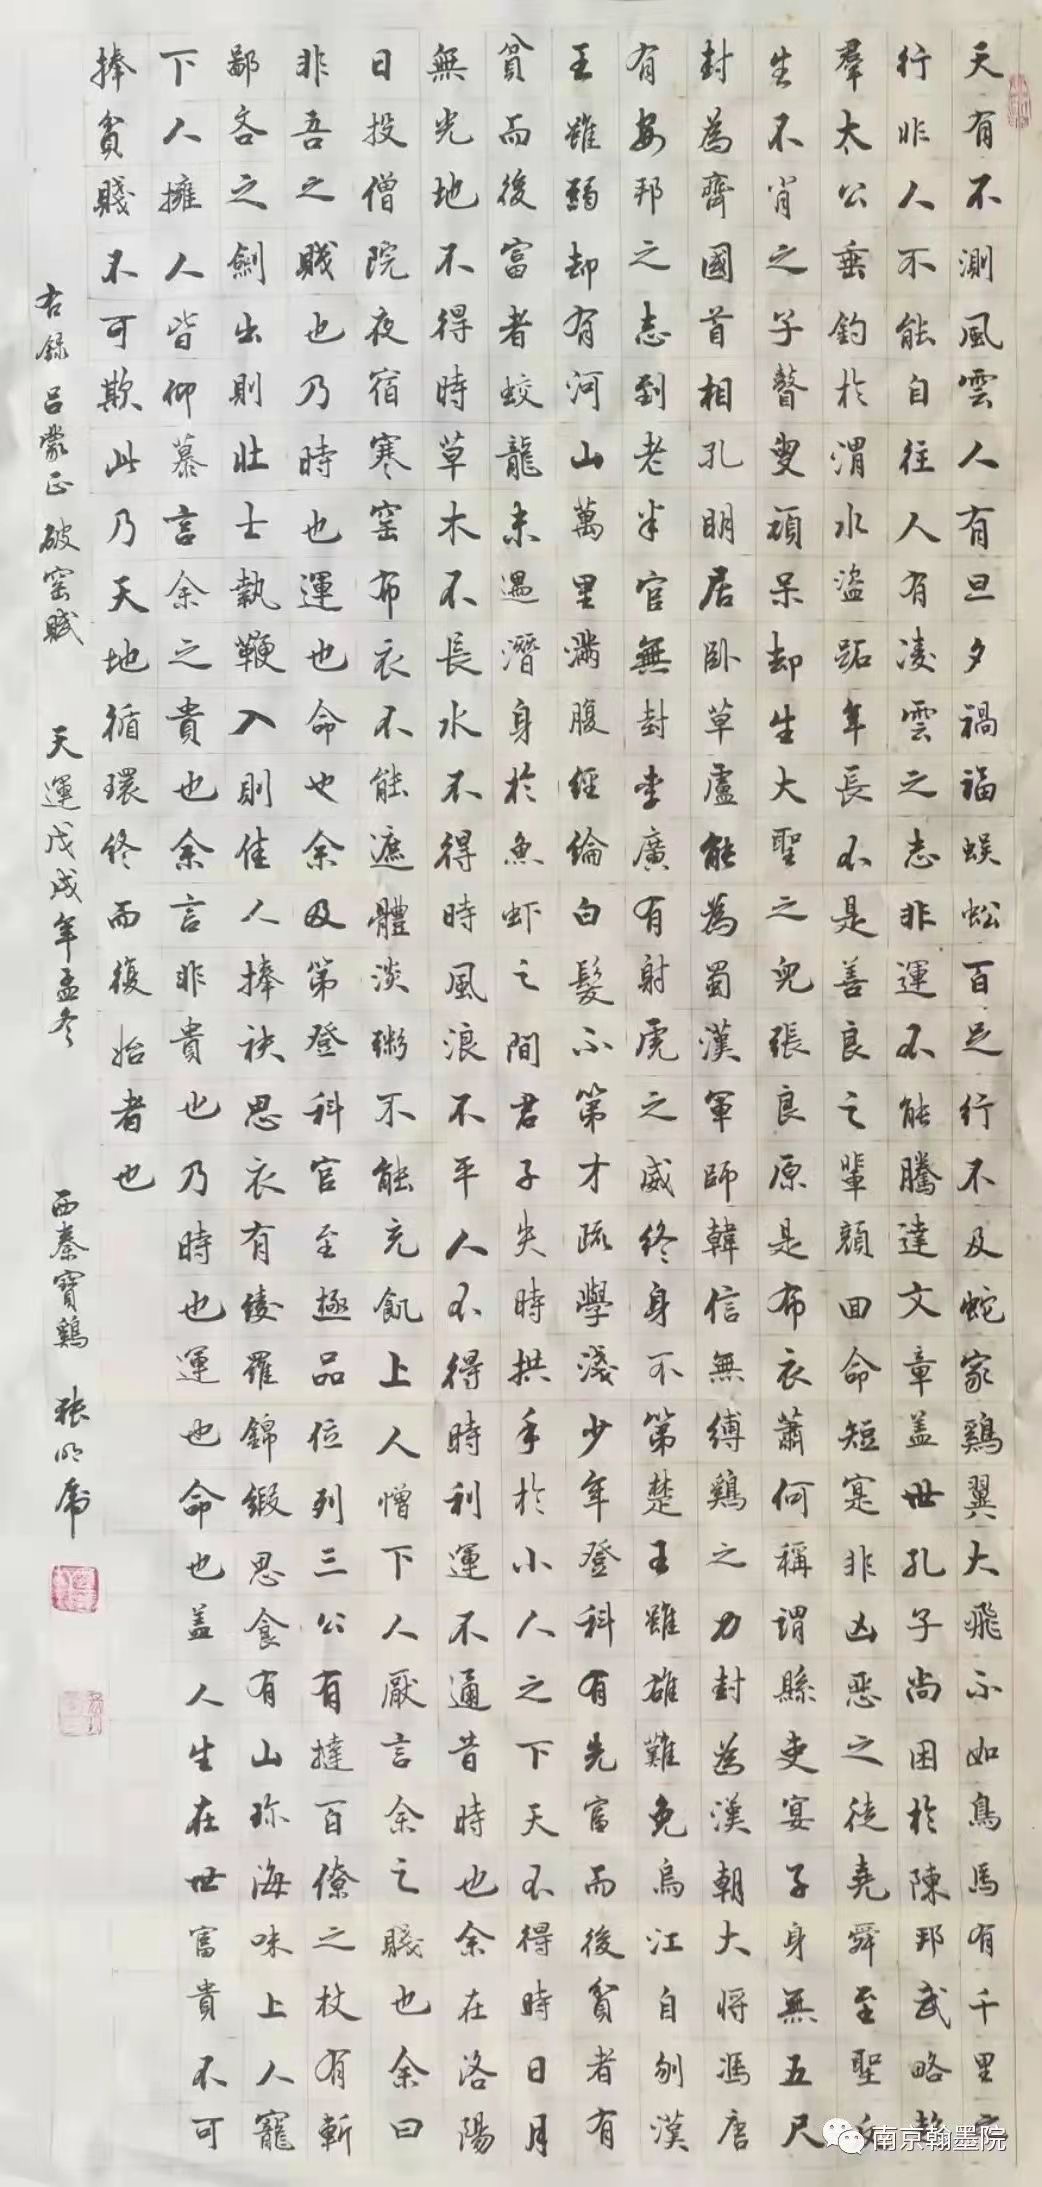 天有不測風雲人有旦夕禍福蜈蚣百足行不及蛇家鷄翼大飛不如鳥馬有千里
行非人不能自往人有凌雲之志非運不能騰達文章盖世孔子尚困於陳邦武略
羣太公垂釣於渭水盗跖年長不是善良之輩顔回命短寔非凶惡之徒堯舜至聖
生不肖之子瞽叟頑呆却生大聖之兒張良原是布衣蕭何稱謂縣吏宴子身無五尺
封為齊國首相孔明居卧草盧能為蜀漢軍師韓信無縛鷄之力封為漢朝大将馮唐
有安邦之志到老半官無封李廣有射虎之威終身不第楚王雖雄難免烏江自刎漢
王雖弱却有河山萬里滿腹經綸白髮不第才疏學淺少年登科有先富而後貧者有
貧而後富者蛟龍未遇潛身於魚虾之間君子失時拱手於小人之下天不得時日月
無光地不得時草木不長水不得時風浪不平人不得時利運不通昔時也余在洛陽
日投僧院夜宿寒窑布衣不能遮體淡粥不能充飢上人憎下人厭言余之賤也余曰
非吾之賤也乃時也運也命也余及第登科官至極品位列三公有撻百僚之杖有斬
鄙吝之劍出則壯士執鞭入則佳人捧袂思衣有綾羅錦緞思食有山珍海味上人寵
下人擁人皆仰慕言余之貴也余言非貴也乃時也運也命也盖人生在世富貴不可
捧貧賤不可欺此乃天地循環終而復始者也
右録吕蒙正破窑賦 天運戊戌年孟冬 西秦寶鷄 張明
南京翰墨院